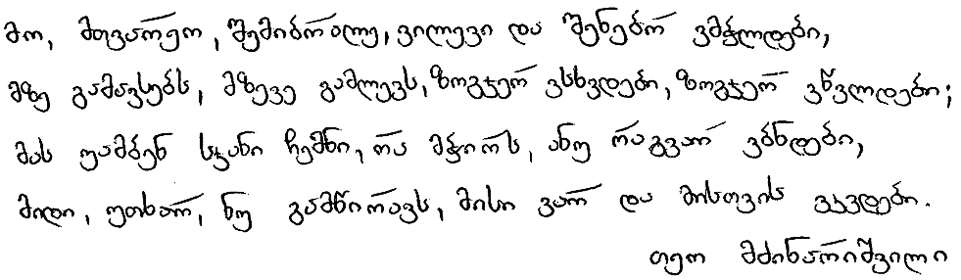 მო, მთვარეო, შემიბრალე, ვილევი და შენებრ ვმჭლდები,
მზე გამავსებს, მზევე გამლევს, ზოგჯერ ვსხვდები, ზოგჯერ ვწვლდები;
მას უამბენ სჯანი ჩემნი, რა მჭირს, ანუ რაგვარ ვბნდები,
მიდი, უთხარ, ნუ გამწირავს, მისი ვარ და მისთვის ვკვდები.
თეო მძინარიშვილი